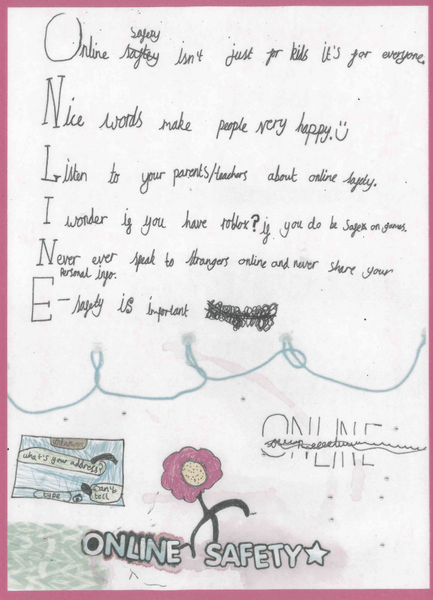 Safety
Online saftey isn't just for kids it's for everyone.
Nice words make people very happy.
Listen to your parents/teachers about online safety.
I wonder if you have roblox? if you do be on games.
Never ever speak to strangers online and never share your
Personal info.
E-safety is important
ONLINE
what's your address?
Can't
tell
type
ONLINE SAFETY